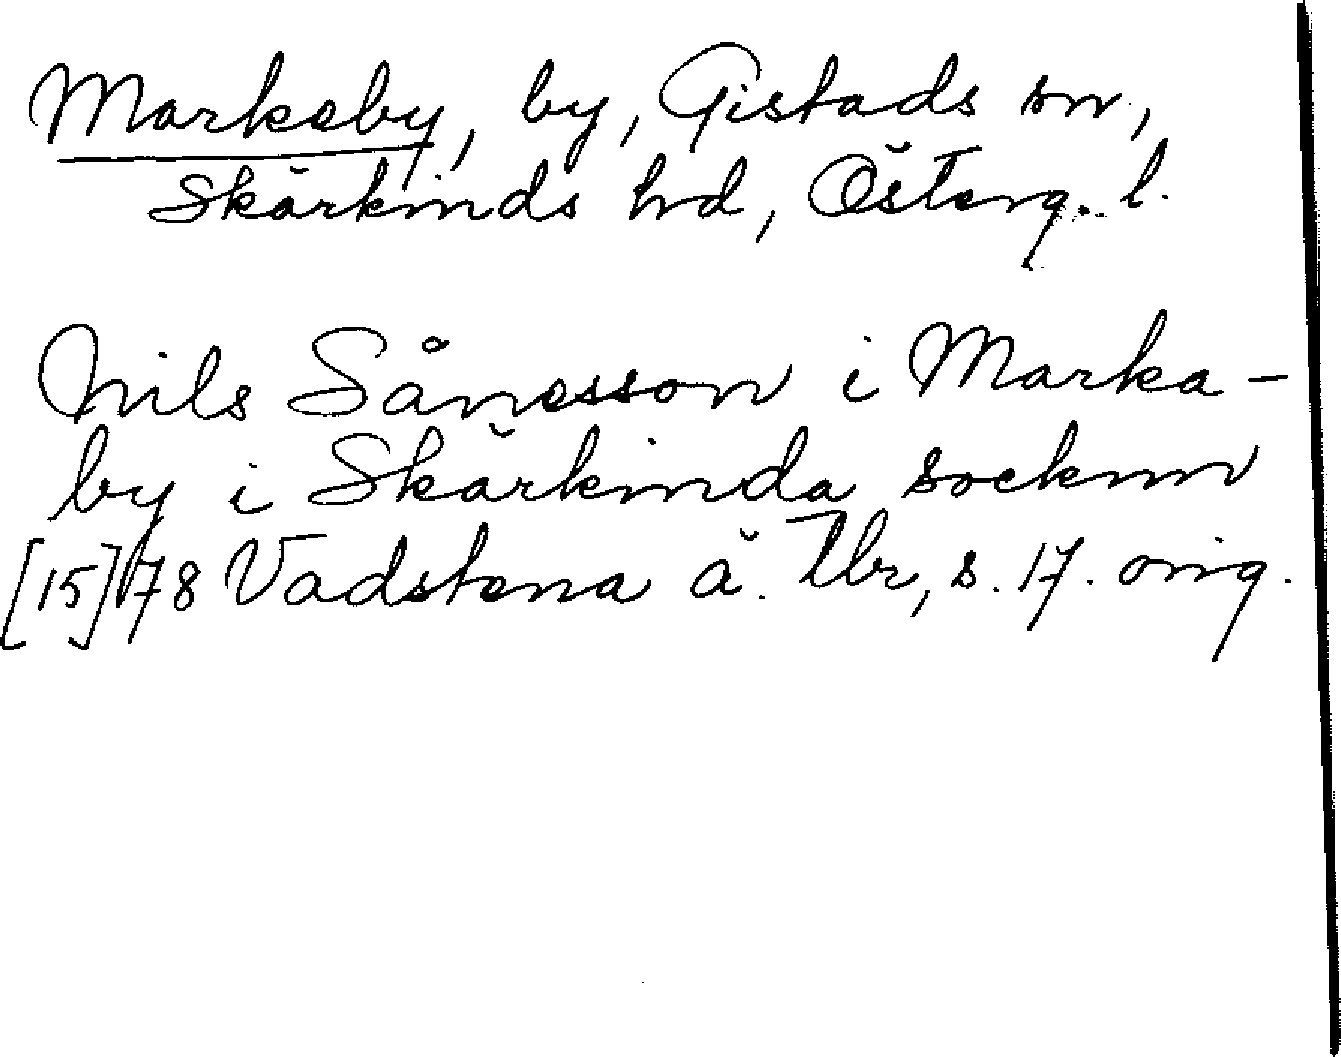 Markeby, by, Gistads sn,
Skärkinds hrd, Österg. l.
Nils Sånesson i Marka-
by i Skärkinda socknn
[15]78 Vadstena ä. Tbr, s. 17. orig.